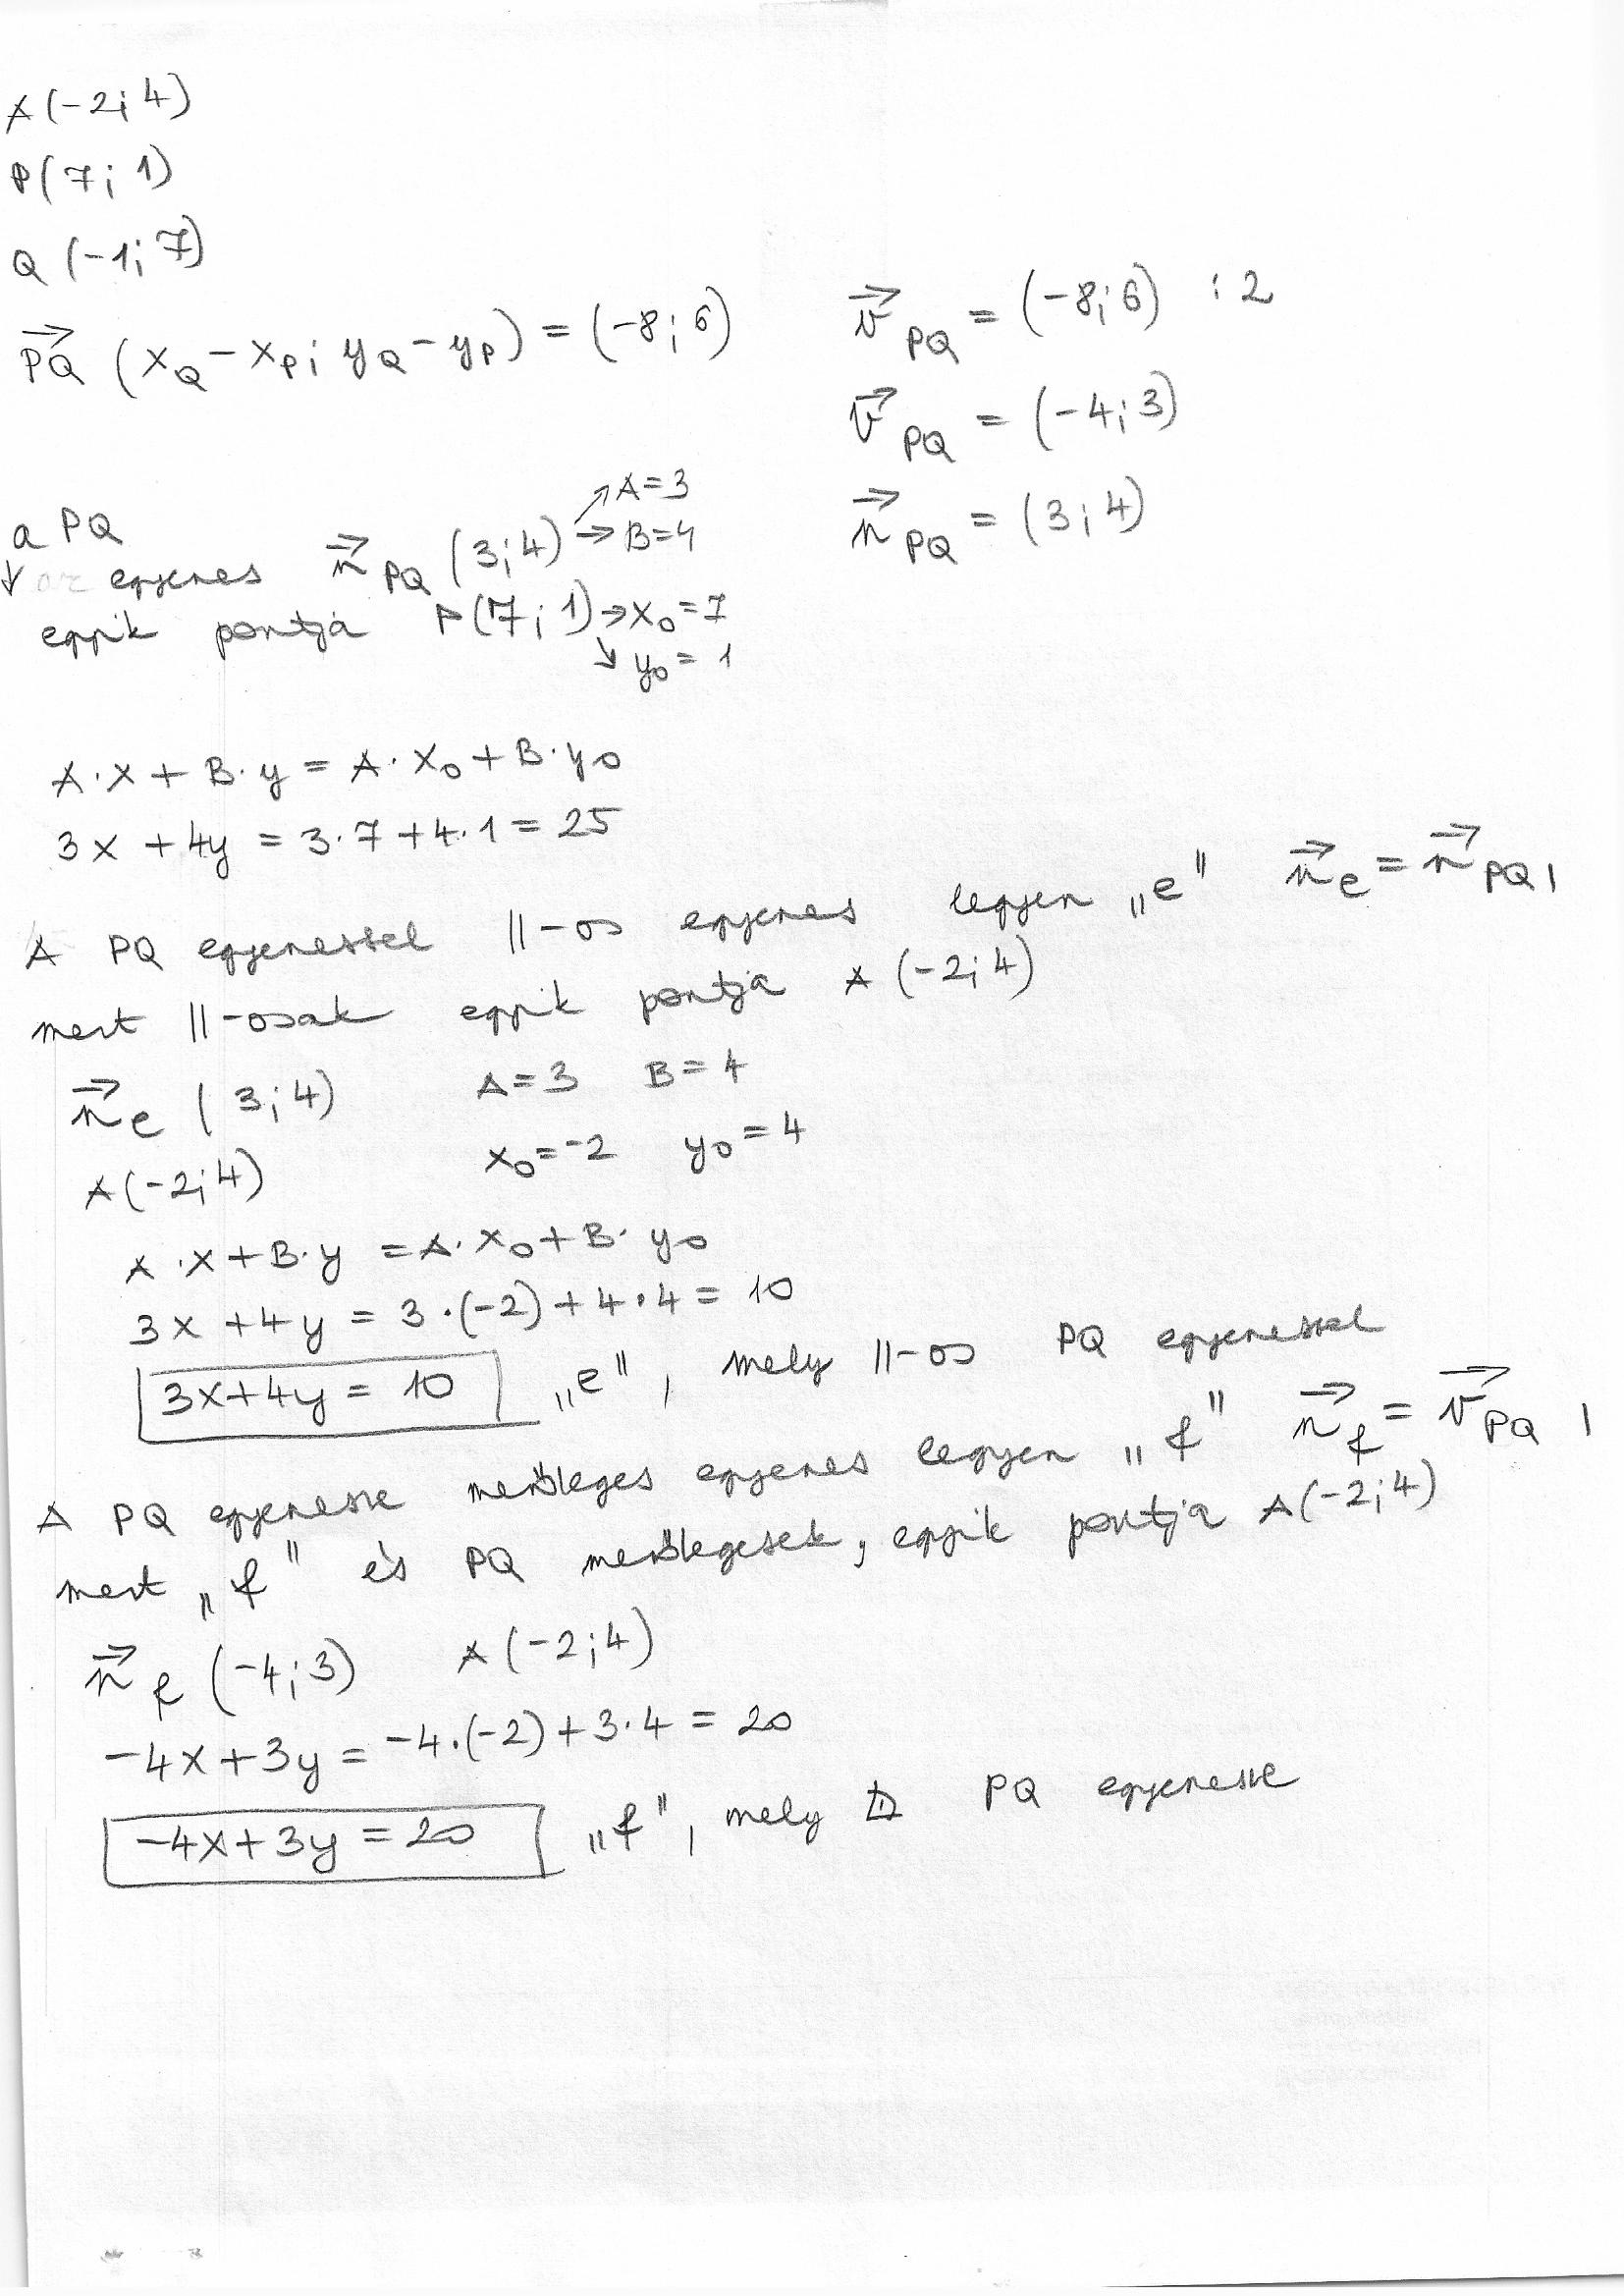 A(-2;4)
P(7;1)
Q(-1;7)
→PQ (xQ-xP; yQ-yP) = (-8;6)
→vPQ = (-8;6) :2
→vPQ = (-4;3)
→nPQ = (3;4)
a PQ
↓ az egyenes →nPQ (3;4) ↗A=3 →B=4
egyik pontja P(7;1) →x0=7 ↘y0=1
A·x+B·y = A·x0+B·y0
3x+4y = 3·7+4·1 = 25
A PQ egyenessel ||-os egyenes legyen „e" →ne = →nPQ,
mert ||-osak egyik pontja A(-2;4)
→ne (3;4) A=3 B=4
A(-2;4) x0=-2 y0=4
A·x+B·y = A·x0+B·y0
3x+4y = 3·(-2)+4·4 = 10
3x+4y = 10 „e", mely ||-os PQ egyenessel
A PQ egyenesre merőleges egyenes legyen „f" →nf = →vPQ,
mert „f" és PQ merőlegesek, egyik pontja A(-2;4)
→nf (-4;3) A(-2;4)
-4x+3y = -4·(-2)+3·4 = 20
-4x+3y = 20 „f", mely ⊥ PQ egyenesre